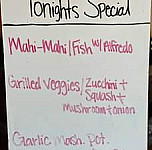 Tonights Special
Mahi-Mahi/Fish w/Alfredo
Grilled Veggies/Zucchini +
Squash +
Mushroom + onion
Garlic Mash. Pot.